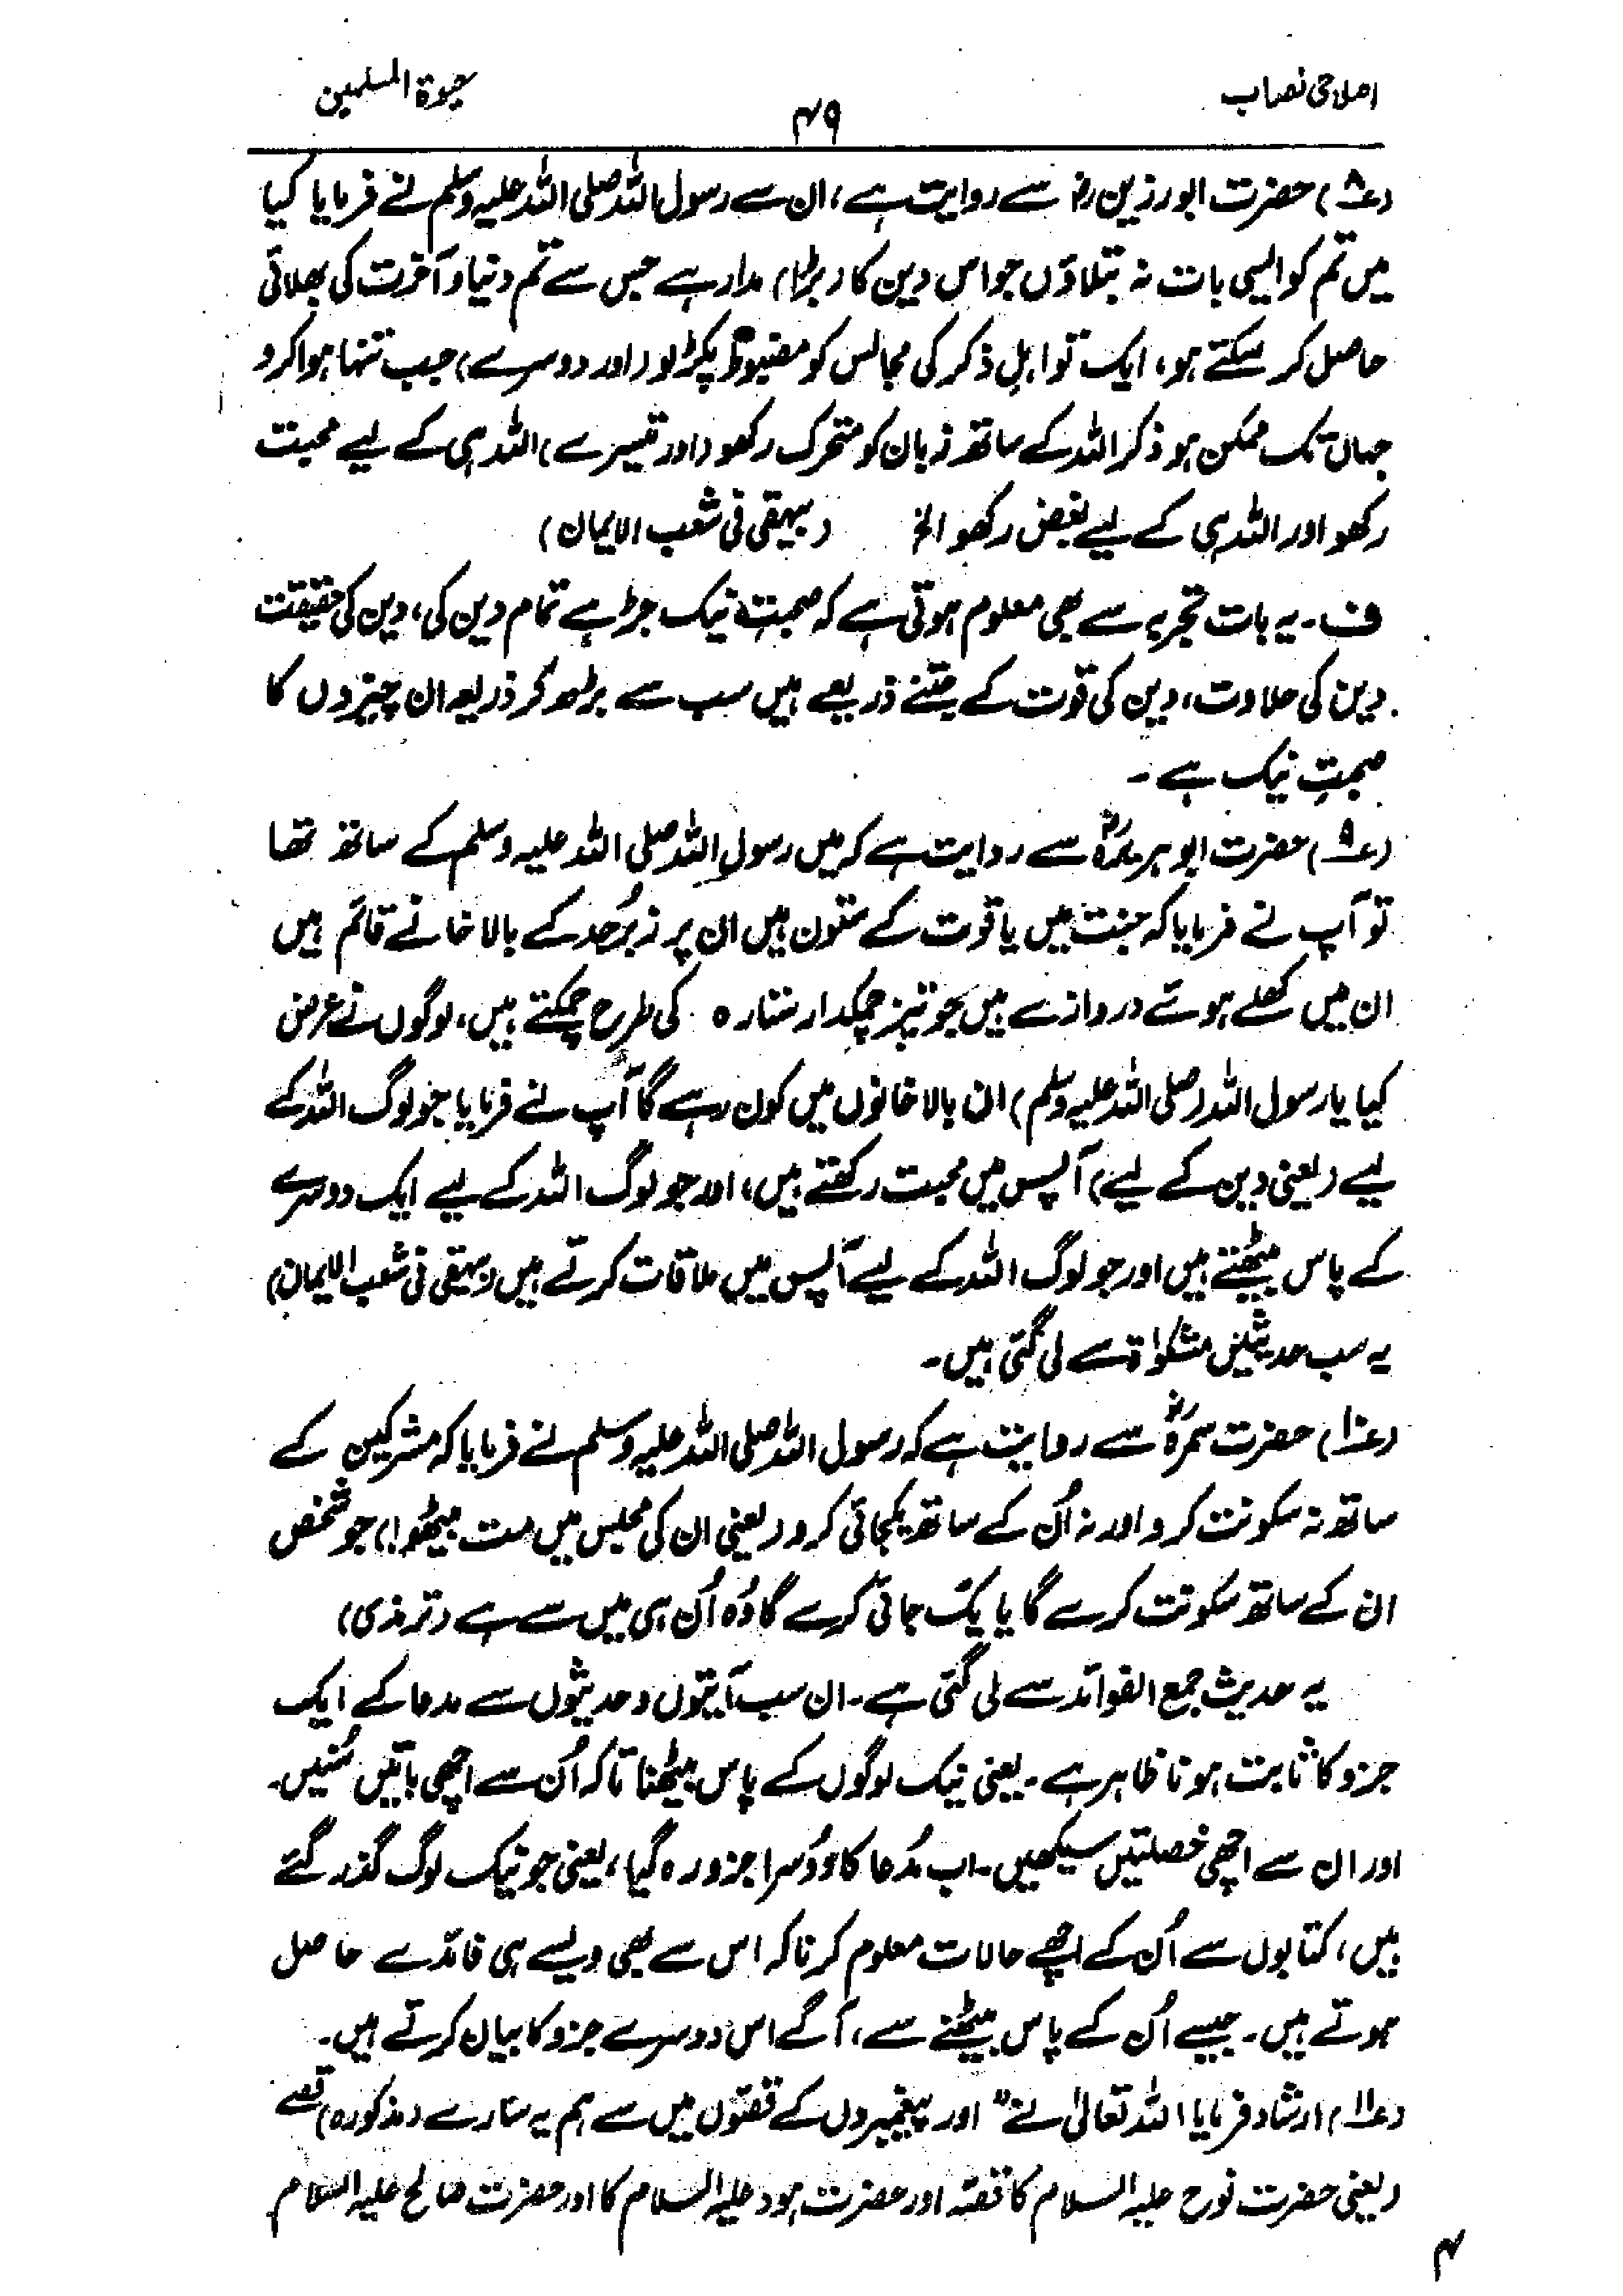 اصلاحی نصاب
۴۹
حیٰوۃ المسلمین
(۸) حضرت ابورزین رض سے روایت ہے، ان سے رسول اللہ صلی اللہ علیہ وسلم نے فرمایا کیا
میں تم کو ایسی بات نہ بتلاؤں جو اس دین کا (بڑا) مدار ہے جس سے تم دنیا و آخرت کی بھلائی
حاصل کر سکتے ہو، ایک تو اہلِ ذکر کی مجالس کو مضبوط پکڑ لو (اور دوسرے) جب تنہا ہوا کرو
جہاں تک ممکن ہو ذکر اللہ کے ساتھ زبان کو متحرک رکھو (اور تیسرے) اللہ ہی کے لیے محبت
رکھو اور اللہ ہی کے لیے بغض رکھو الخ (بیہقی فی شعب الایمان)
ف۔ یہ بات تجربہ سے بھی معلوم ہوتی ہے کہ صحبتِ نیک جڑ ہے تمام دین کی، دین کی حقیقت
دین کی حلاوت، دین کی قوت کے جتنے ذریعے ہیں سب سے بڑھ کر ذریعہ ان چیزوں کا
صحبتِ نیک ہے۔
(۹) حضرت ابو ہریرہؓ سے روایت ہے کہ میں رسول اللہ صلی اللہ علیہ وسلم کے ساتھ تھا
تو آپ نے فرمایا کہ جنت میں یاقوت کے ستون ہیں ان پر زبرُجد کے بالاخانے قائم ہیں
ان میں کھلے ہوئے دروازے ہیں جو تیز چمکدار ستارہ کی طرح چمکتے ہیں، لوگوں نے عرض
کیا یا رسول اللہ (صلی اللہ علیہ وسلم) ان بالاخانوں میں کون رہے گا آپ نے فرمایا جو لوگ اللہ کے
لیے (یعنی دین کے لیے) آپس میں محبت رکھتے ہیں، اور جو لوگ اللہ کے لیے ایک دوسرے
کے پاس بیٹھتے ہیں اور جو لوگ اللہ کے لیے آپس میں ملاقات کرتے ہیں (بیہقی فی شعب الایمان)
یہ سب حدیثیں مشکوٰۃ سے لی گئی ہیں۔
(۱۰) حضرت سمرہؓ سے روایت ہے کہ رسول اللہ صلی اللہ علیہ وسلم نے فرمایا کہ مشرکین کے
ساتھ نہ سکونت کرو اور نہ اُن کے ساتھ یکجائی کرو (یعنی ان کی مجلس میں مت بیٹھو) جو شخص
ان کے ساتھ سکونت کرے گا یا یک جائی کرے گا وُہ اُن ہی میں سے ہے (ترمذی)
یہ حدیث جمع الفوائد سے لی گئی ہے۔ ان سب آیتوں و حدیثوں سے مدعا کے ایک
جزو کا ثابت ہونا ظاہر ہے۔ یعنی نیک لوگوں کے پاس بیٹھنا تاکہ اُن سے اچھی باتیں سُنیں۔
اور ان سے اچھی خصلتیں سیکھیں۔ اب مُدعا کا دوُسرا جزو رہ گیا، یعنی جو نیک لوگ گذر گئے
ہیں، کتابوں سے اُن کے اچھے حالات معلوم کرنا کہ اس سے بھی ویسے ہی فائدے حاصل
ہوتے ہیں۔ جیسے اُن کے پاس بیٹھنے سے، آگے اس دوسرے جزو کا بیان کرتے ہیں۔
(۱۱) ارشاد فرمایا اللہ تعالیٰ نے " اور پیغمبروں کے قصّوں میں سے ہم یہ سارے (مذکورہ) قصے
(یعنی حضرت نوح علیہ السلام کا قصّہ اور حضرت ہود علیہ السلام کا اور حضرت صالح علیہ السلام
۴